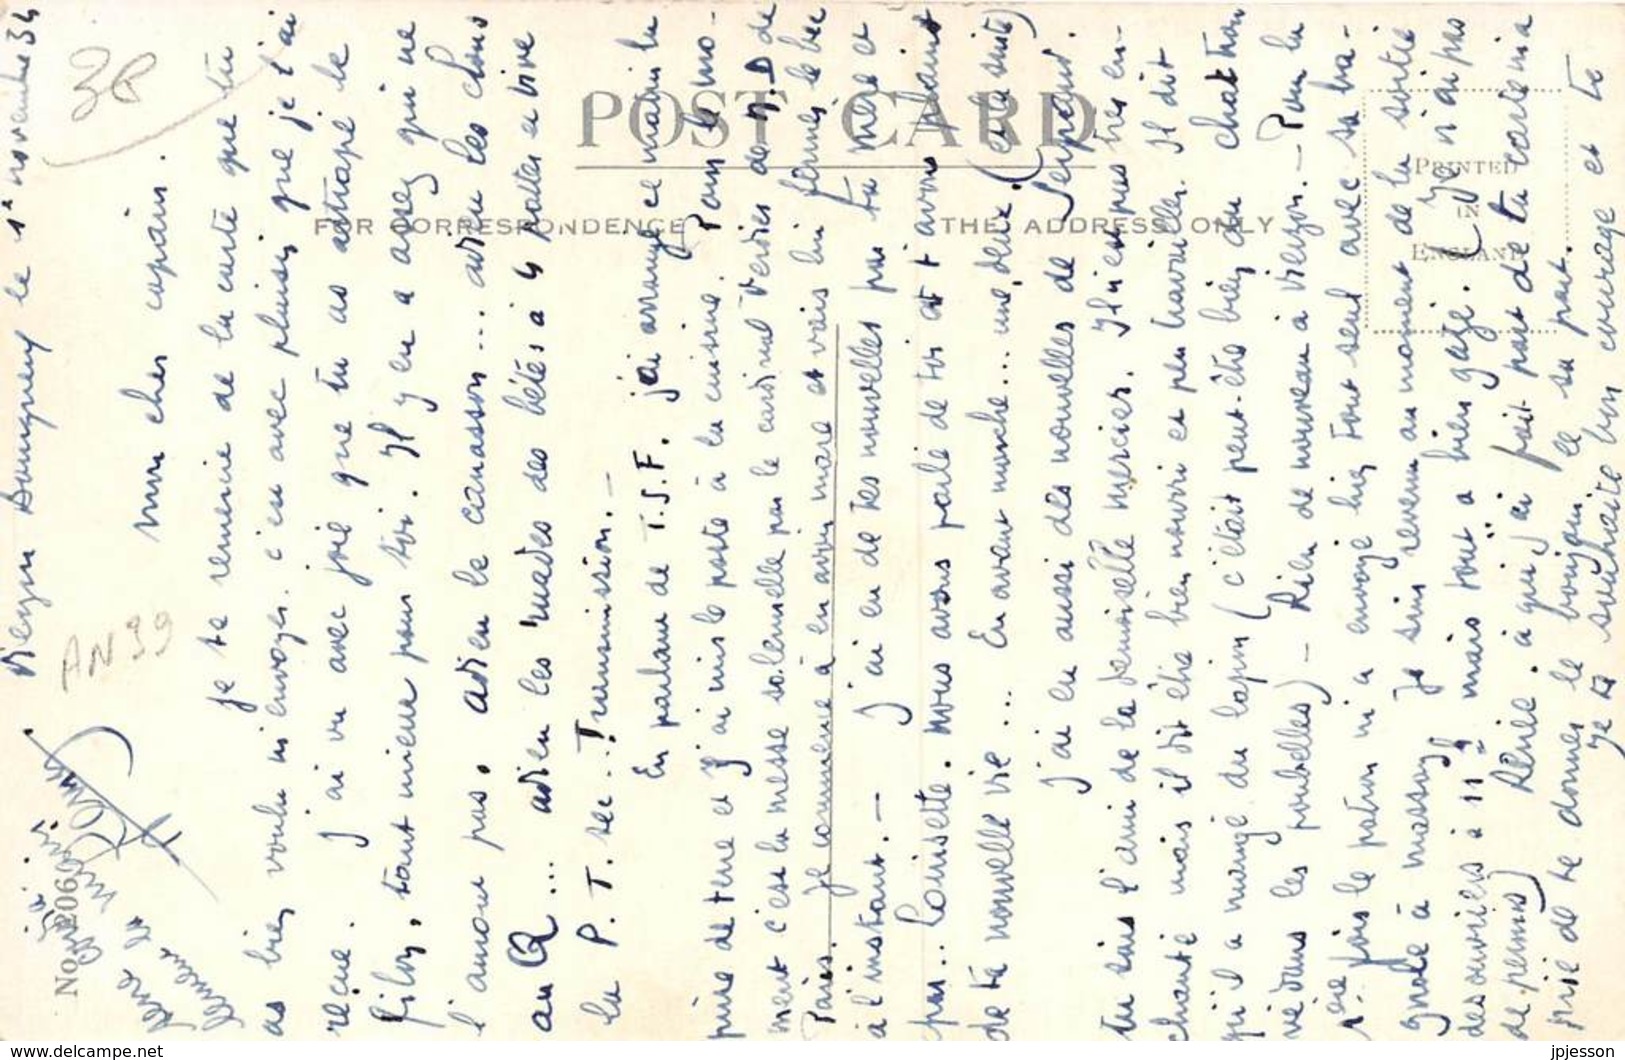 Vierzon le 1er novembre 34
Mon cher copain.
Je te remercie de la carte que tu
as bien voulu m'envoyer. c'est avec plaisir que je l'ai
reçue. J'ai vu avec joie que tu as attrapé le
filon, tant mieux pour toi. Il y en a assez qui ne
l'auront pas. adieu le canasson... adieu les clous
au Q... adieu les ruades des bêtes à 4 pattes et vive
la P.T. sec.. Transmission. —
En parlant de T.S.F. j'ai arrangé ce matin la
prise de terre et j'ai mis le poste à la cuisine. Pour le mo-
ment c'est la messe solennelle par le cardinal Verdier de N.D de
Paris. Je commence à en avoir marre et vais lui fermer le bec
à l'instant. — J'ai eu de tes nouvelles par ta mère et
par.. Louisette. nous avons parlé de toi et t'avons plaint
de ta nouvelle vie... En avant marche... une, deux. (et la suite)
J'ai eu aussi des nouvelles de Serpaud.
tu sais l'ami de la demoiselle Mercier. Il n'est pas très en-
chanté mais il dit être bien nourri et peu travailler. Il dit
qu'il a mangé du lapin (c'était peut-être bien du chat trouvé
dans les poubelles) — Rien de nouveau à Vierzon. — Pour la
1ère fois le patron m'a envoyé hier tout seul avec sa ba-
gnole à Massay. Je suis revenu au moment de la sortie
des ouvriers à 11h mais tout a bien gazé. (je n'ai pas
de permis) René. à qui j'ai fait part de ta carte m'a
prié de te donner le bonjour de sa part.
Je te souhaite bon courage et te
serre la main
POST CARD
FOR CORRESPONDENCE
THE ADDRESS ONLY
PRINTED
IN
ENGLAND
No. 206
38
AN39
www.delcampe.net
jpjesson